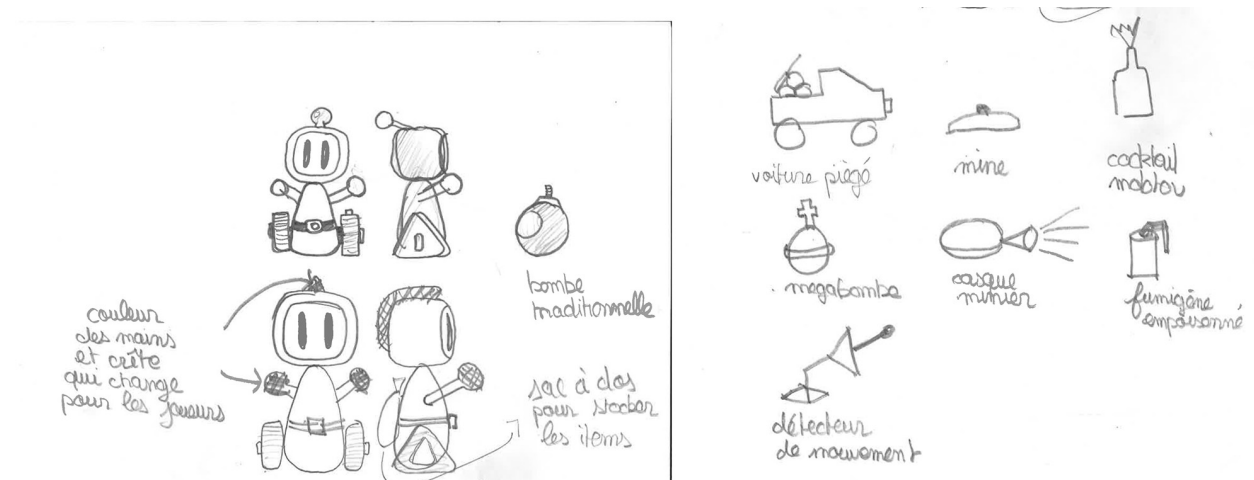 couleur
des mains
et crête
qui change
pour les joueurs
bombe
traditionnelle
sac à dos
pour stocker
les items
voiture piégé
mine
cocktail
molotov
megabombe
casque
minier
fumigène
empoisonné
détecteur
de mouvement